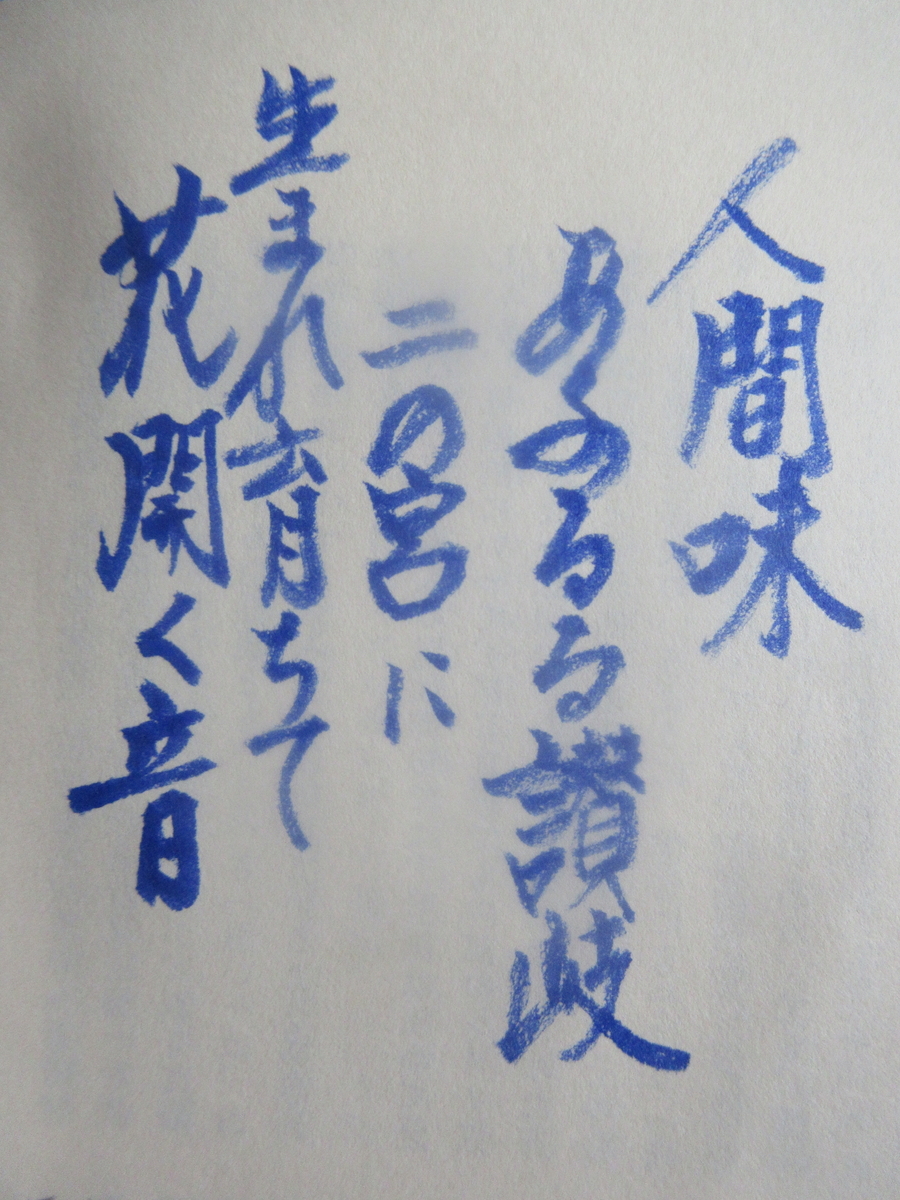 人間味
あふるる讃岐
二の宮に
生まれ育ちて
花開く音